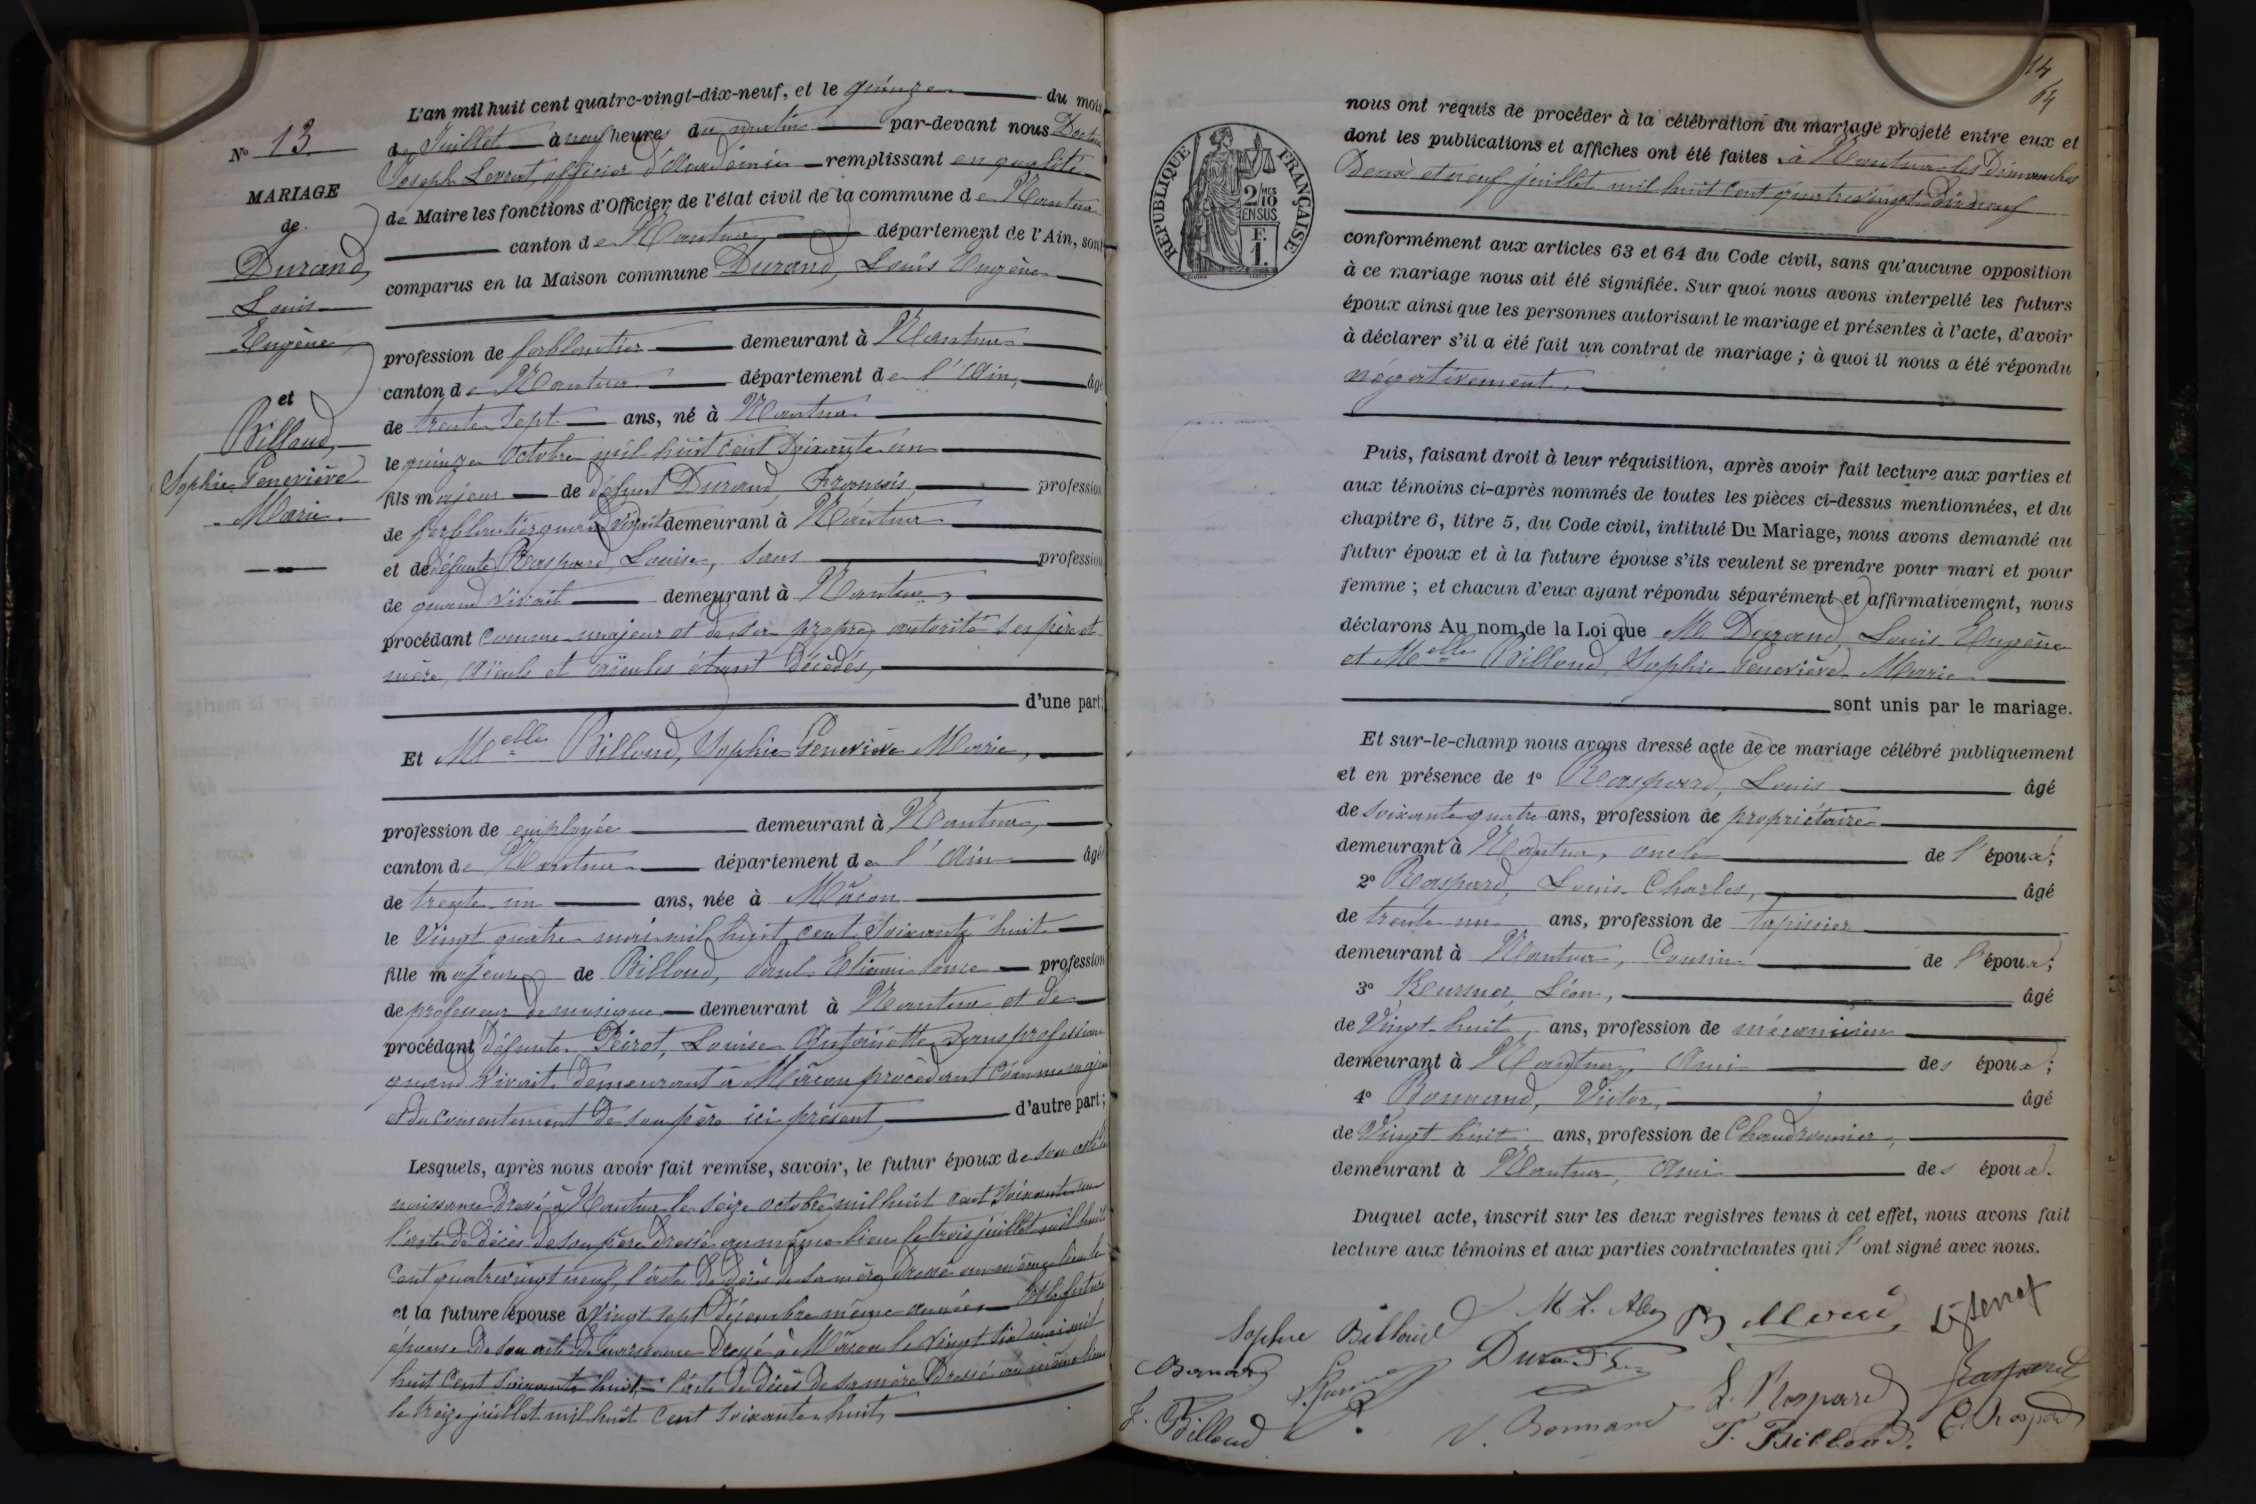 N° 13
MARIAGE
de
Durand,
Louis
Eugène
et
Billoud,
Sophie Geneviève
Marie.
L'an mil huit cent quatre-vingt-dix-neuf, et le quinze du mois
de Juillet à neuf heures du matin par-devant nous Docteur
Joseph Levrat, officier d'Académie remplissant en qualité
de Maire les fonctions d'Officier de l'état civil de la commune de Nantua
canton de Nantua, département de l'Ain, sont
comparus en la Maison commune Durand, Louis Eugène
profession de ferblantier demeurant à Nantua
canton de Nantua département de l'Ain, âgé
de trente sept ans, né à Nantua
le quinze octobre mil huit cent soixante un
fils majeur de défunt Durand François profession
de ferblantier quand vivait demeurant à Nantua
et de défunte Raspard, Louise, sans profession
de quand vivait demeurant à Nantua,
procédant comme majeur et de sa propre autorité ses père et
mère, aïeuls et aïeules étant décédés,
d'une part;
Et Melle Billoud, Sophie Geneviève Marie,
profession de employée demeurant à Nantua,
canton de Nantua département de l'Ain âgée
de trente un ans, née à Mâcon
le vingt quatre mai mil huit cent soixante huit
fille majeure de Billoud, Etienne profession
de professeur de musique demeurant à Nantua et de
procédant défunte Louise Antoinette sans profession
quand vivait demeurant à Mâcon procédant comme majeure
et du consentement de son père ici présent d'autre part;
Lesquels, après nous avoir fait remise, savoir, le futur époux de son acte de
naissance dressé à Nantua le seize octobre mil huit cent soixante un
l'acte de décès de son père dressé au même lieu le trois juillet mil huit
cent quatre vingt neuf, l'acte de décès de sa mère dressé au même lieu le
et la future épouse d vingt sept décembre même année Et la future
épouse de son acte de naissance dressé à Mâcon le vingt six mai mil
huit cent soixante huit, l'acte de décès de sa mère dressé au même lieu
le treize juillet mil huit cent soixante huit,
14
64
RÉPUBLIQUE FRANÇAISE
2/10
EN SUS
F.
1.
nous ont requis de procéder à la célébration du mariage projeté entre eux et
dont les publications et affiches ont été faites à Nantua les Dimanches
Deux et neuf juillet mil huit cent quatre vingt dix neuf
conformément aux articles 63 et 64 du Code civil, sans qu'aucune opposition
à ce mariage nous ait été signifiée. Sur quoi nous avons interpellé les futurs
époux ainsi que les personnes autorisant le mariage et présentes à l'acte, d'avoir
à déclarer s'il a été fait un contrat de mariage; à quoi il nous a été répondu
négativement.
Puis, faisant droit à leur réquisition, après avoir fait lecture aux parties et
aux témoins ci-après nommés de toutes les pièces ci-dessus mentionnées, et du
chapitre 6, titre 5, du Code civil, intitulé Du Mariage, nous avons demandé au
futur époux et à la future épouse s'ils veulent se prendre pour mari et pour
femme; et chacun d'eux ayant répondu séparément et affirmativement, nous
déclarons Au nom de la Loi que M. Durand, Louis Eugène
et Melle Billoud, Sophie Geneviève Marie
sont unis par le mariage.
Et sur-le-champ nous avons dressé acte de ce mariage célébré publiquement
et en présence de 1° Raspard, Louis âgé
de soixante quatre ans, profession de propriétaire
demeurant à Nantua, oncle de l'époux;
2° Raspard, Louis Charles, âgé
de trente un ans, profession de tapissier
demeurant à Nantua, Cousin de l'époux;
3° Léon, âgé
de vingt huit ans, profession de mécanicien
demeurant à Nantua, Ami des époux;
4° Bonnand, Victor, âgé
de vingt huit ans, profession de Chaudronnier,
demeurant à Nantua, Ami des époux.
Duquel acte, inscrit sur les deux registres tenus à cet effet, nous avons fait
lecture aux témoins et aux parties contractantes qui l'ont signé avec nous.
Sophie Billoud
Durand
L. Raspard
Raspard
J. Billoud
V. Bonnand
T. Billoud
C. Raspard